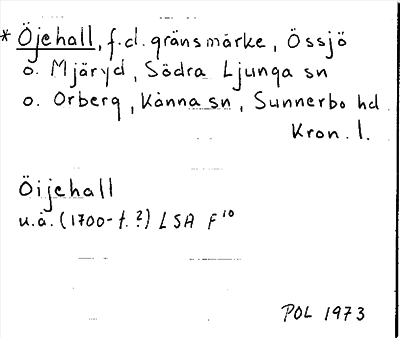 * Öjehall, f.d. gränsmärke, Össjö
o. Mjäryd, Södra Ljunga sn
o. Orberg, Kånna sn, Sunnerbo hd
Kron. l.
Öijehall
u.å. (1700-t.?) LSA F¹⁰
POL 1973